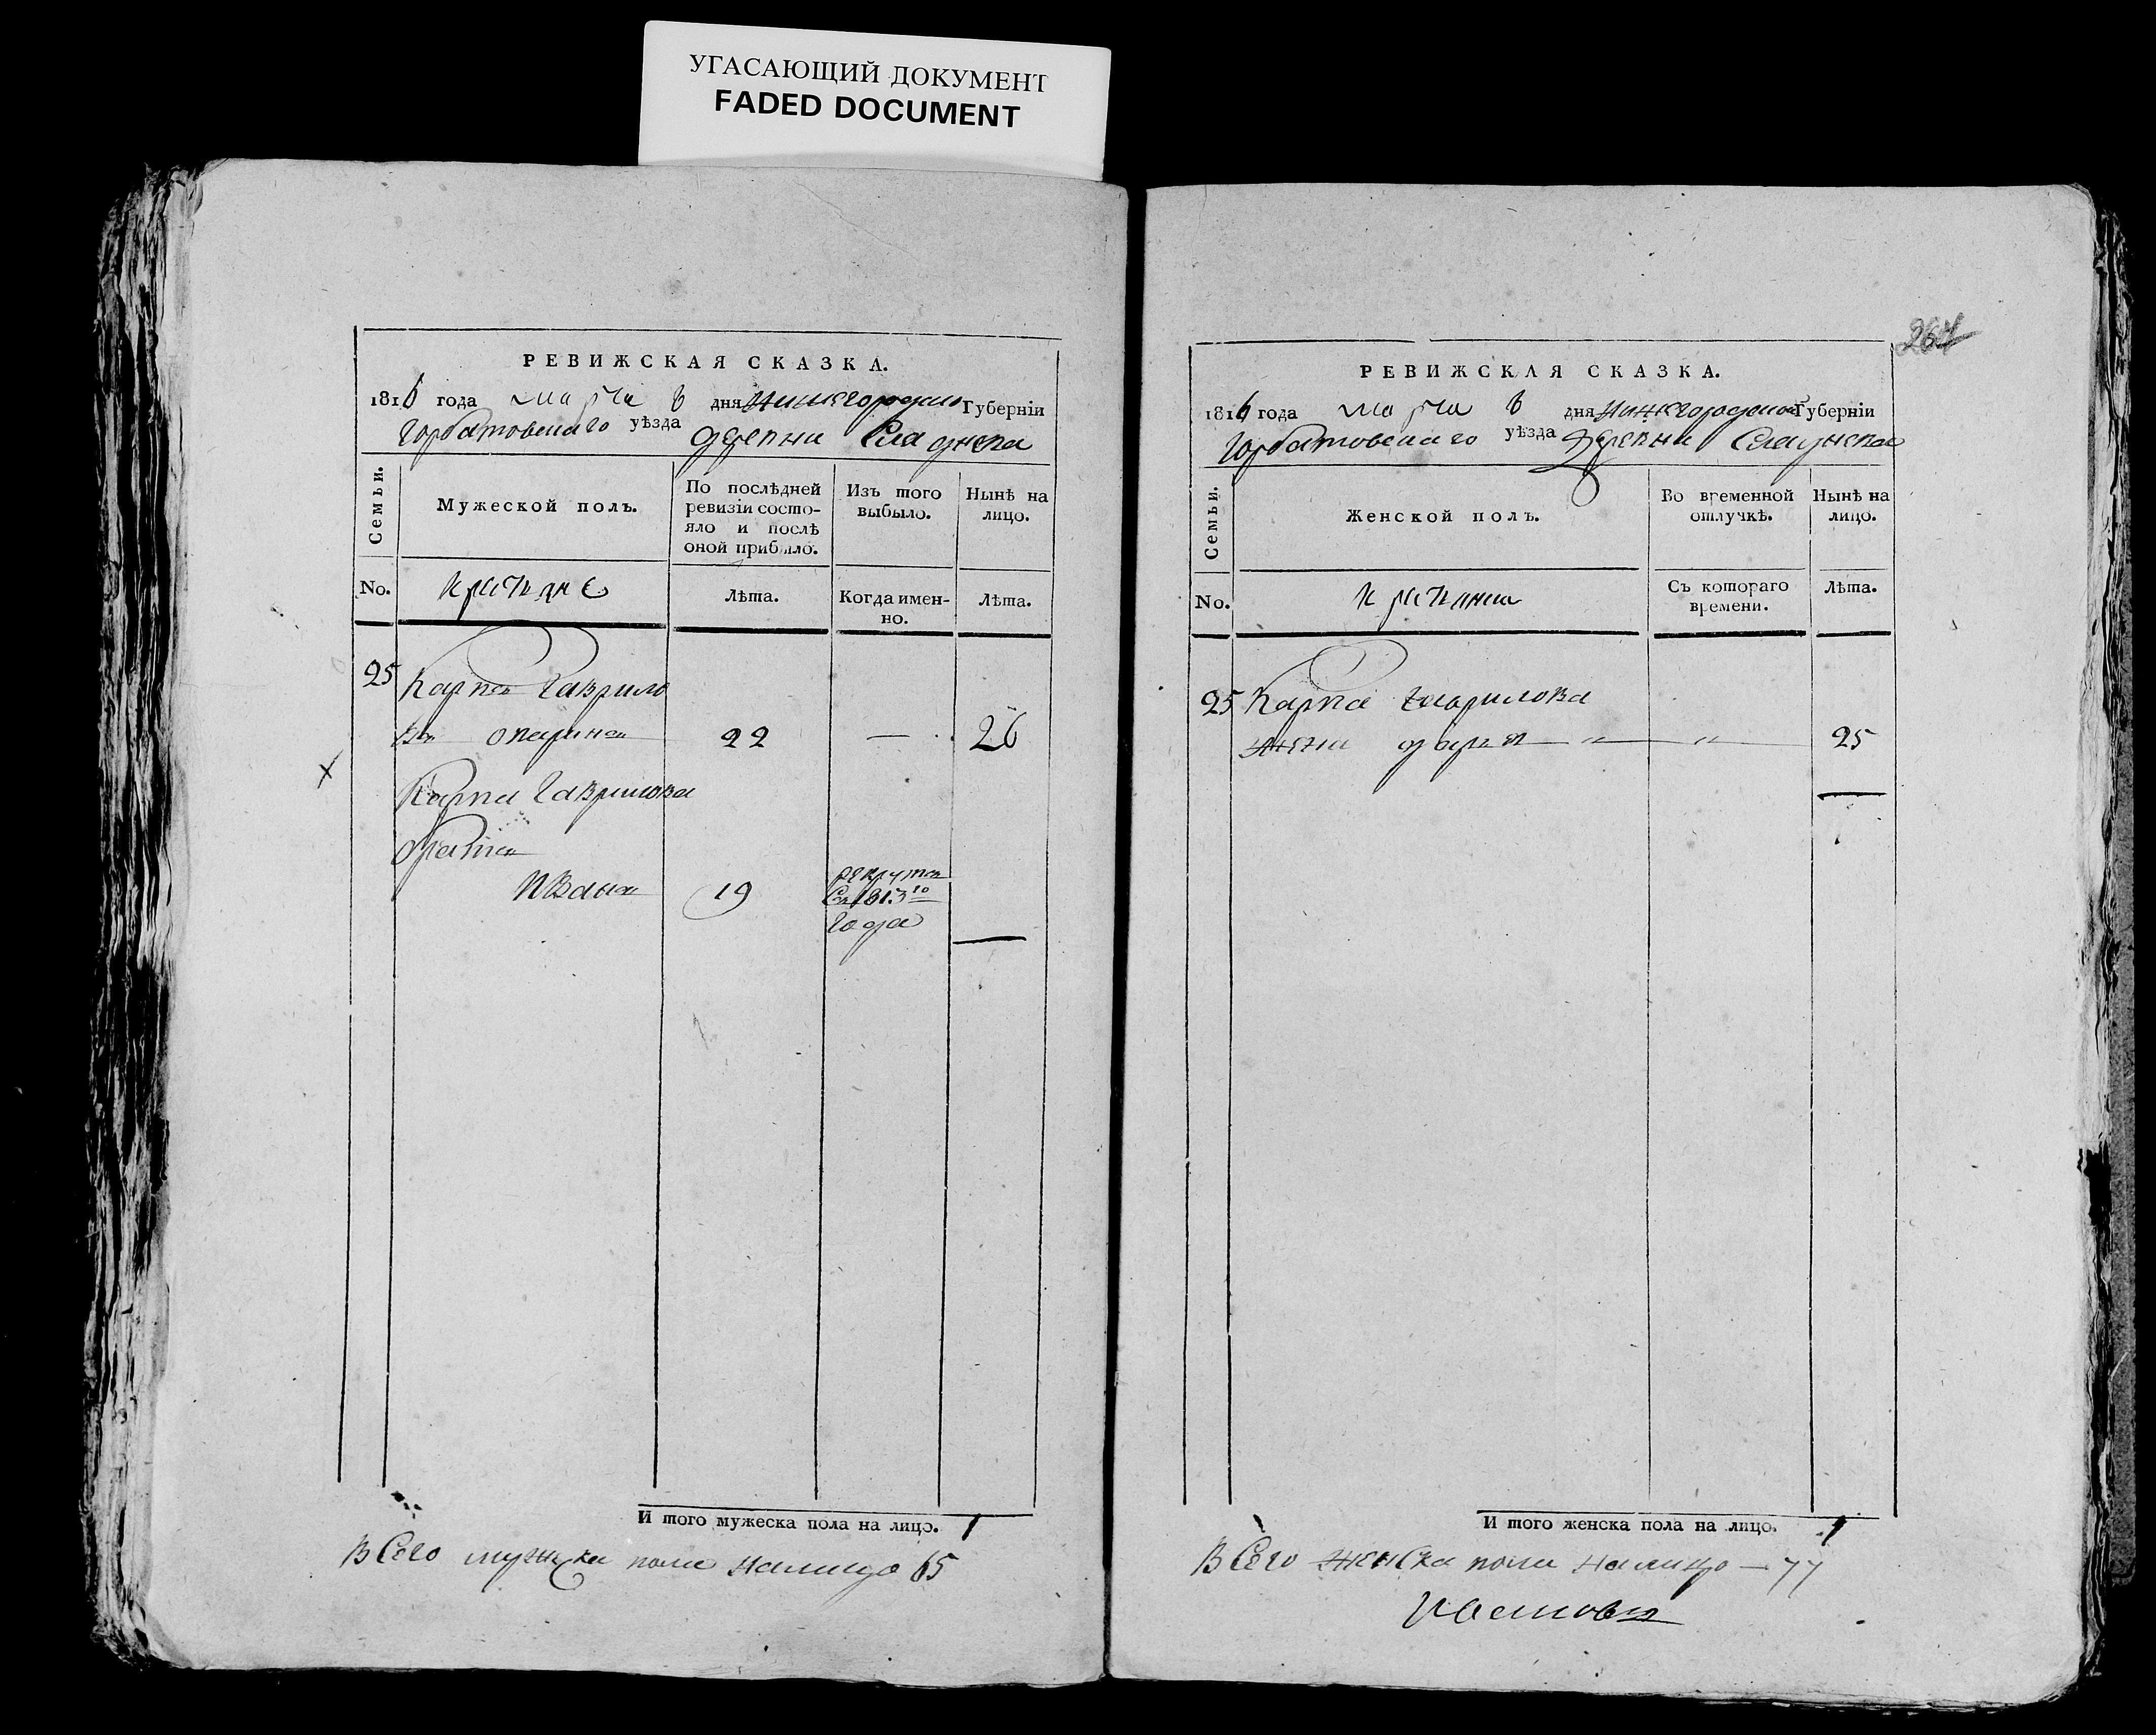 УГАСАЮЩИЙ ДОКУМЕНТ
FADED DOCUMENT
РЕВИЖСКАЯ СКАЗКА.
1816 года марта 8 дня Нижегородско Губерніи
Горбатовскаго уѣзда деревни
Семьи.
Мужеской полъ.
По послѣдней
ревизіи состо-
яло и послѣ
оной прибыло.
Изъ того
выбыло.
Нынѣ на
лицо.
No.
Лѣта.
Когда имен-
но.
Лѣта.
25
Карпъ Гаврило
въ 22 — 26
Карпа Гаврилова
братъ
Иванъ 19
рекрутъ
съ 1813го
года
И того мужеска пола на лицо. 1
Всего мужеска пола налицо 65
264
РЕВИЖСКАЯ СКАЗКА.
1816 года марта 8 дня Нижегородской Губерніи
Горбатовскаго уѣзда деревни
Семьи.
Женской полъ.
Во временной
отлучкѣ.
Нынѣ на
лицо.
No.
Съ котораго
времени.
Лѣта.
25 Карпа Гаврилова
жена дарья — " — " — 25
И того женска пола на лицо. 1
Всего женска пола налицо — 77